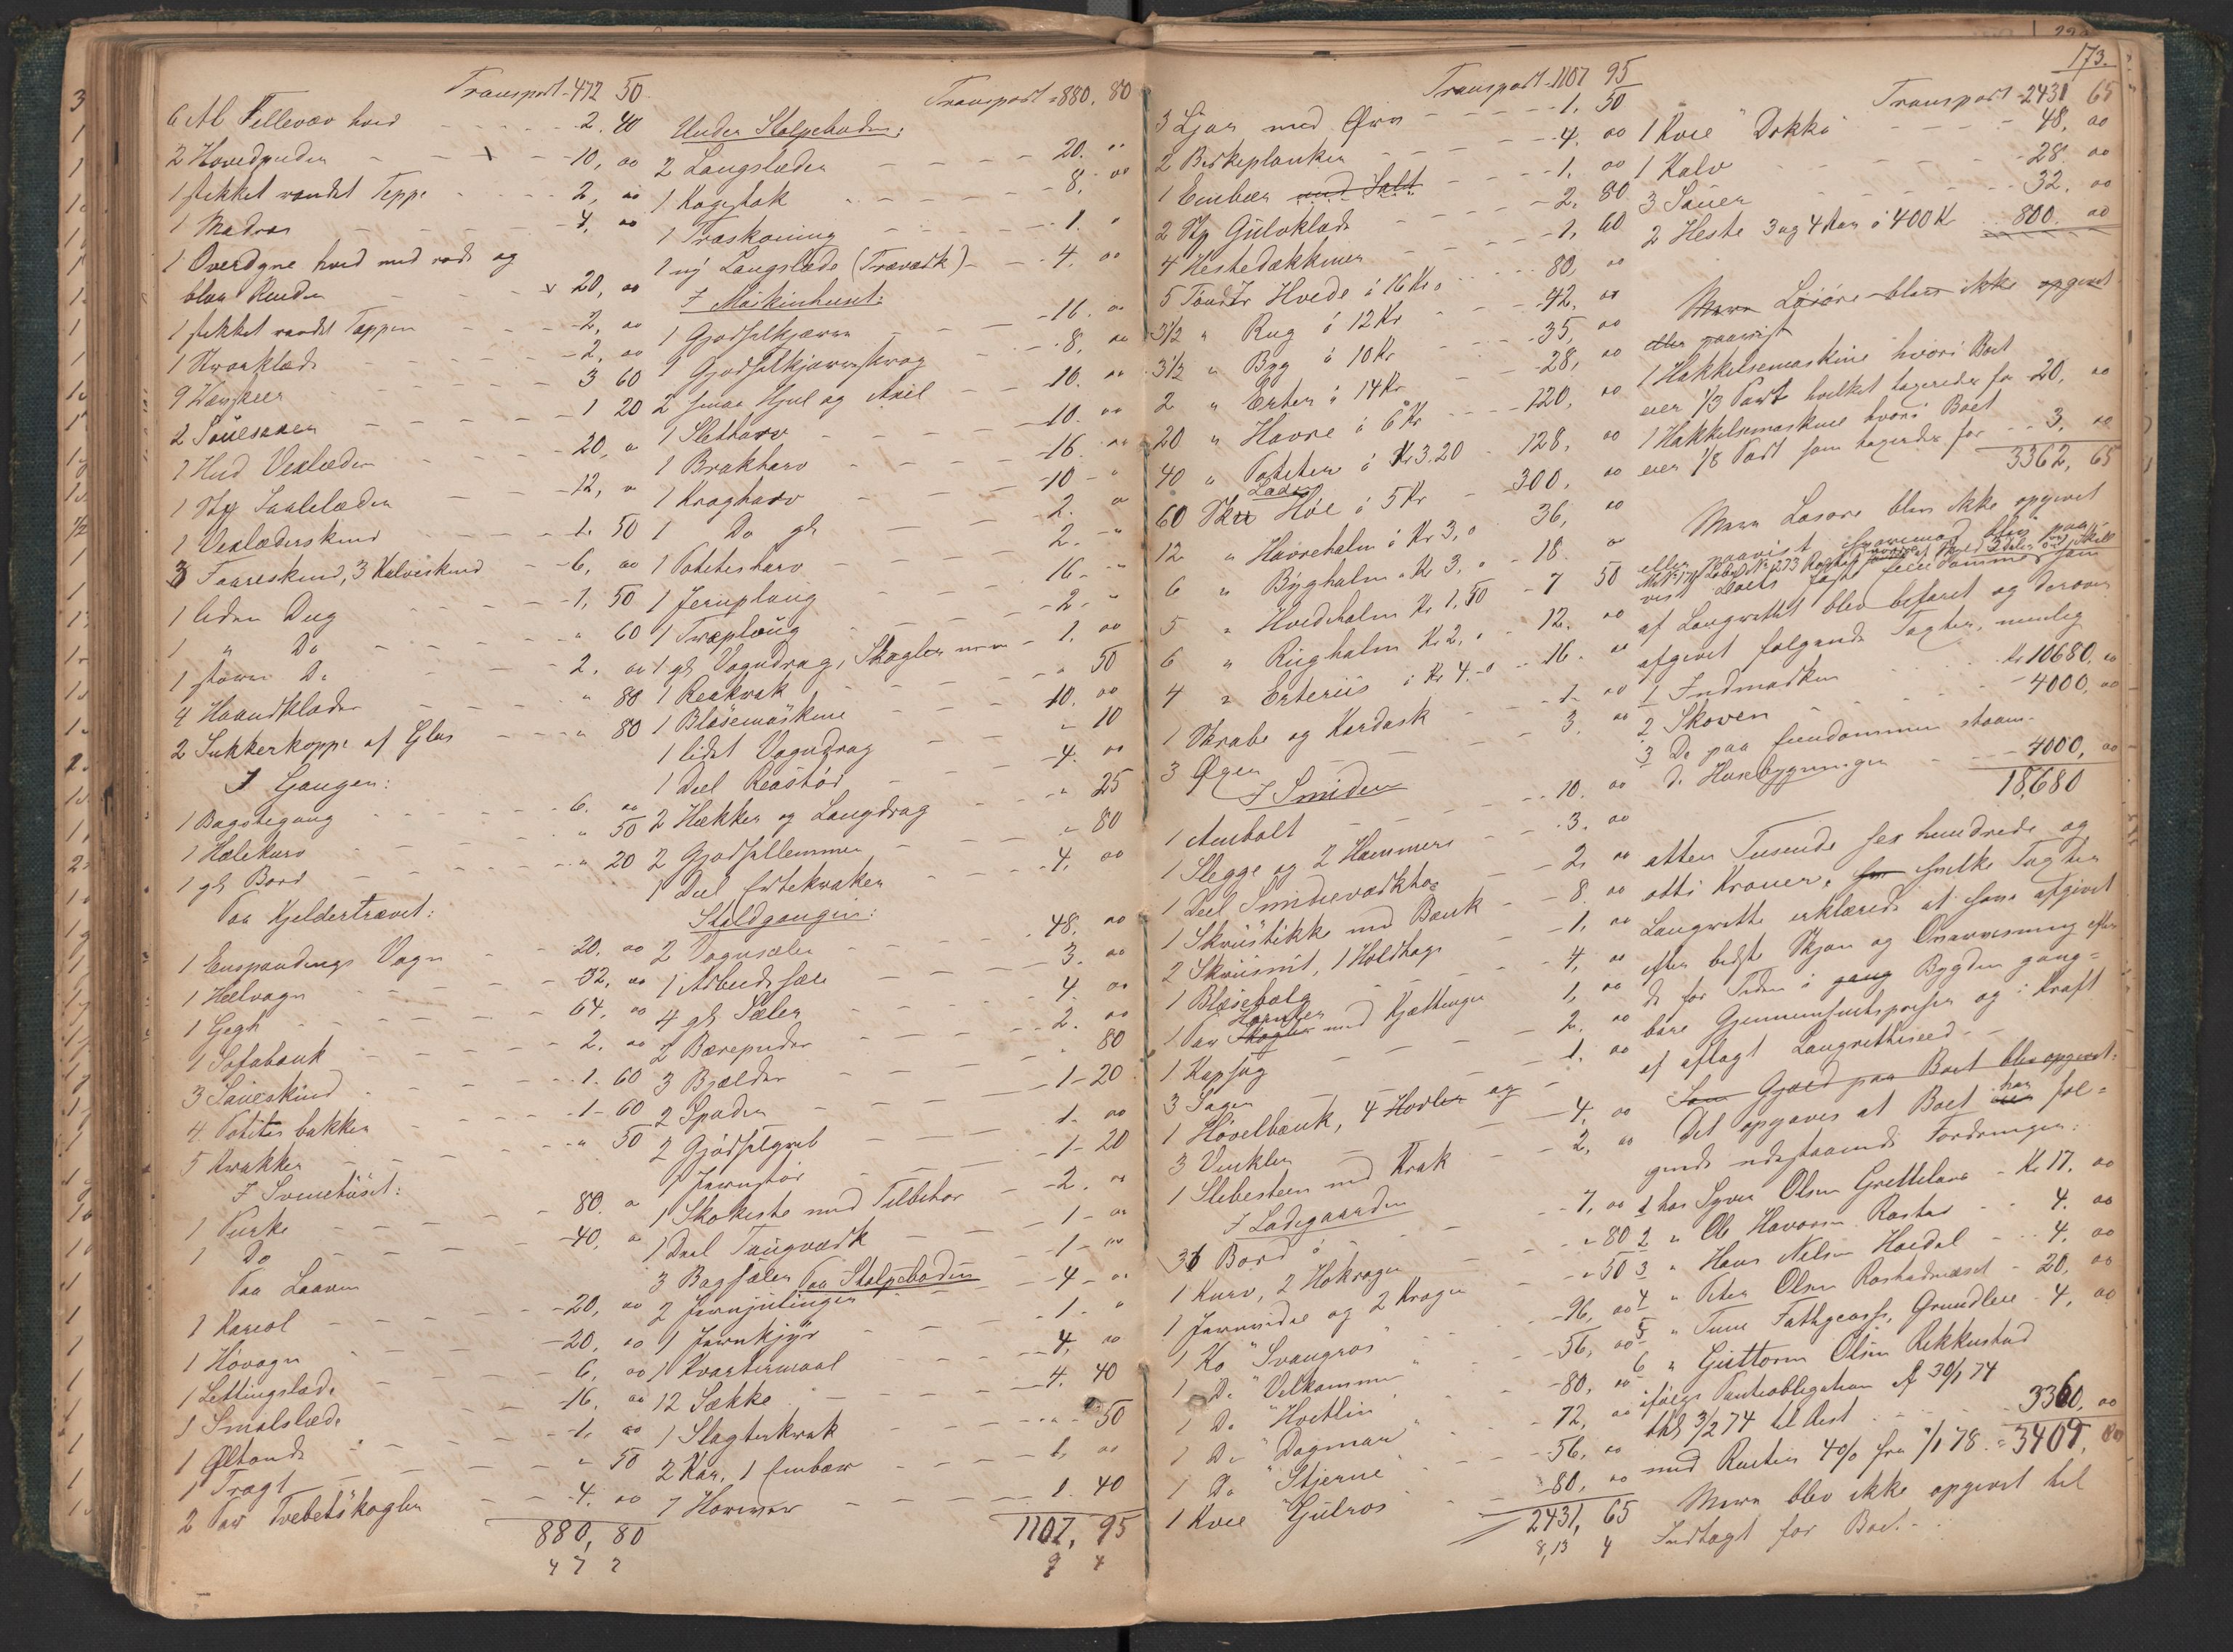 Transport 472 50
6 Al Fellevæv hvid 2. 40
2 Hovedpuder 10, 00
1 stikket vandet Teppe 2, 00
1 Madras 4, 00
1 Overdyne hvid med røde og
blaa Render 20, 00
1 stikket vandet Teppen 2, 00
1 Kvarklæde 2, 00
9 3 60
2 1 20
1 Hud Veslæder 20, "
1 Stk Saalelæder 12, "
1 Veslæderskind 1. 50
3 Faareskind, 3 Kalveskind 6, 00
1 liden Dug 1, 50
1 " Do " 60
1 større Do 2. 00
4 Haandklæder " 80
2 Sukkerkoppe af Glas " 80
I Gangen:
1 Bagstegang 6. 00
1 Hælekurv " 50
1 gl Bord " 20
Paa Kjeldertrævet:
1 Enspændings Vogn 20. 00
1 Hælvogn 32, 00
1 Gegh 64, 00
1 Sofabænk 2. 00
3 Saueskind 1. 60
4 Potetes bakker 1 - 60
5 Krakker " 50
I Svinehuset:
1 Purke 80. "
1 Do 40, "
Paa Laaven
1 Kariol 20, 00
1 Høvogn 20, 00
1 Lettingslæde 6, 00
1 Smalslæde 16, 00
1 Øltønde 1, 00
1 Tragt " 50
2 Par Tvebetskagler 4. 00
880, 80
4 7 2
Transport 880, 80
Under Stolpeboden:
2 Langslæder 20. "
1 Kagestak 8, 00
1 Træskoning 1. "
1 ny Langslæde (Træværk) 4. 00
I Maskinhuset:
1 Gjødselkjærre 16. 00
1 Gjødselkjærreskrog 8, 00
2 smaa Hjul og Axil 10. 00
1 Sletharv 10. 00
1 Brakharv 16. 00
1 Krogharv 10 - "
1 Do gl 2. "
1 Potetesharv 2. - "
1 Jernploug 16. - "
1 Træploug 2. - "
1 gl Vogndrag, Skagler m m 1. 00
1 Reakrak " 50
1 Blæsemaskine 10. 00
1 lidet Vogndrag " 10
1 Deel Reastør 4. 00
2 Hækker og Langdrag " 25
2 Gjødsellemmer " 80
1 Deel Ertekraker 4. 00
Staldgangen:
2 Vognsæler 48. 00
1 Arbeidssæle 3. 00
4 gl Sæler 4 00
2 Bærepuder 2. 00
3 Bjælder " 80
2 Spader 1 - 20
2 Gjødselgreb 1. 00
1 Jernstør 1 - 20
1 Skokiste med Tilbehør 2. "
1 Deel Taugværk 1 - 00
3 Bagsæler 1 - 00
Paa Stolpeboden
2 Jernjutinger 4 - 00
1 Jernkjyr 1 - "
1 Kvartermaal 4, 00
12 Sække 4. 40
1 Slagterkrak " 50
2 Kar, 1 Embær 1, 00
7 1. 40
1107, 95
9 4
173.
Transport 1107 95
3 Ljaar med Ørv 1, 50
2 Birkeplanker 4. 00
1 Embær med Salt 1, 00
2 Stk Gulvklæde 2. 80
4 Hestedækkener 1, 60
5 Tønder Hvede à 16 Kr 80 00
3½ " Rug à 12 Kr 42. 00
3½ " Byg à 10 Kr 35, 00
2 " Erter à 14 Kr 28, 00
20 " Havre à 6 Kr 120, 00
40 " Poteter à Kr 3.20 128, 00
60 Læs Høe à 5 Kr 300, 00
12 " Havrehalm à Kr 3, " 36, 00
6 " Byghalm à Kr 3, " 18. "
5 " Hvedehalm Kr 1,50 7 50
6 " Rughalm Kr 2, " 12. 00
4 " Erteriis à Kr 4. - " 16. 00
1 Skrabe og Kardask 1 - 00
3 Øxer 3. 00
I Smiden
1 Ambolt 10. 00
1 Slegge og 2 Hammere 3. 00
1 Deel Smideværktøi 2, 00
1 Skruestikke med Bænk 8. 00
2 Skruesnit, 1 Holdhage 1, 00
1 Blæsebælg 4, 00
1 Par Skagler med Kjættinger 1, 00
1 Kapsag 2. 00
3 Sager 1. 00
1 Høvelbænk, 4 Høvler og
3 Vinkler 4, 00
1 Slibesteen med Krak 2, 00
I Ladegaarden
36 Bord 7, 00
1 Kurv, 2 Høkroger " 80
1 Jernvidie og 2 Kroger " 50
1 Ko "Svangros" 96, 00
1 Do "Velkommen" 56, 00
1 Do "Hvitlin" 80, 00
1 Do "Dagmar" 72, 00
1 Do "Stjerne" 56, 00
1 Kvie "Gulros" 80, 00
2431, 65
8,13 4
Transport 2431 65
1 Kvie "Dokka" 48, 00
1 Kalv 28. 00
3 Sauer 32, 00
2 Heste 3 og 4 Aar à 400 Kr 800. 00
Mere Løsøre blev ikke opgivet
eller paavist
1 Hakkelsemaskine hvori Boet
eier 1/3 Part hvilket tageredes for 20, 00
1 Hakkelsemaskine hvori Boet
eier 1/8 Part som tageredes for 3, 00
3362, 65
Mere Løsøre blev ikke opgivet
eller paavist hvorimod blev paa-
vist Boets faste Eiendomme, som
af Laugrettet blev befaret og derover
afgivet følgende Tagster, nemlig
1 Indmarken Kr 10680, 00
2 Skoven 4000, 00
3 De paa Eiendommen staaen-
de Husebygninger 4000, 00
18,680
atten Tusende sex hundrede og
otti Kroner, hvilke Tagster
Laugrette erklærede at have afgivet
efter bedste Skjøn og Overveisning efter
de for Tiden i gang Bygden gang=
bare Gjennemsnitspriser og i Kraft
af aflagt Laugretteseed -
Som Gjæld paa Boet blev opgivet:
Det opgaves at Boet har føl=
gende udestaaende Fordringer:
1 hos Syver Olsen Gretteland Kr 17, 00
2 " Ole Havorsen Rastad 4. 00
3 " Hans Nilsen Hoedal 4, 00
4 " Peter Olsen Rastadmæset 20, 00
5 " Tune Fattigcasse, Grundleie 4, 00
6 " Guttorm Olsen Rekkustad
ifølge Panteobligation af 30/1 74
thl 3/2 74 til Rest 3360, 00
med Renter 4% fra 1/1 78. = 3409, 00
Mere blev ikke opgivet til
Indtægt for Boet. -